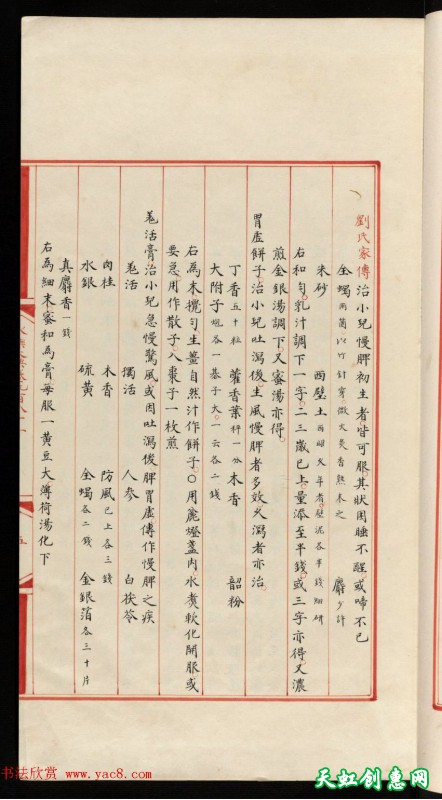 劉氏家傳治小兒慢脾初生者皆可服其狀困睡不醒或啼不已
全蝎兩箇以竹針穿微火炙香熟未之 麝少許
朱砂 西壁土西照久年者壁泥各半錢細研
右和勻乳汁調下一字二三歲已上量添至半錢或三字亦得又濃
煎金銀湯調下又蜜湯亦得
胃虛餅子治小兒吐瀉後生風慢脾者多效久瀉者亦治
丁香五十粒 藿香葉秤一分 木香 韶粉
大附子炮各一基子大一云各二錢
右為末攪勻生薑自然汁作餅子○用麄燈盞內水煑軟化開服或
要急用作散子入棗子一枚煎
羗活膏治小兒急慢驚風或因吐瀉後脾胃虛傳作慢脾之疾
羗活 獨活 人參 白茯苓
肉桂 木香 防風已上各三錢
水銀 硫黃 全蝎各二錢 金銀箔各三十片
真麝香一錢
右為細末蜜和為膏每服一黃豆大薄荷湯化下
五
书法欣赏 www.yac8.com
天虹创惠网